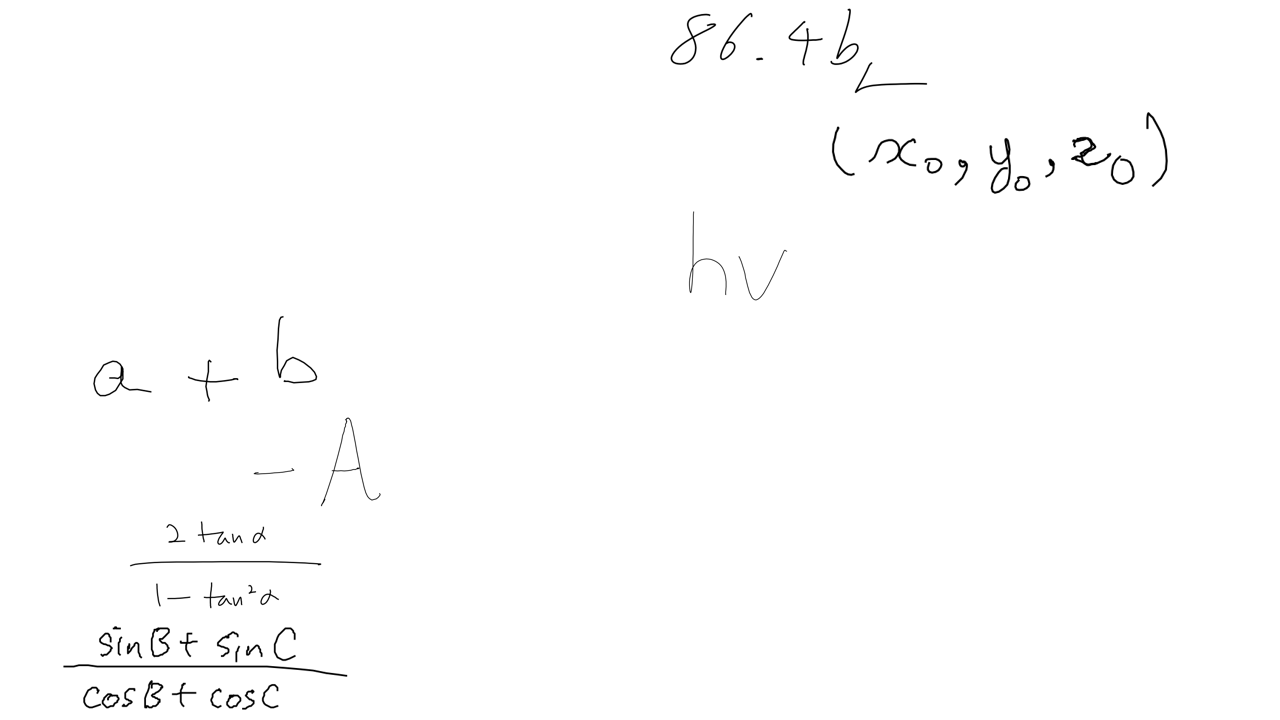 86.4b_
(x₀, y₀, z₀)
hv
a + b
- A
2 tan α
1 - tan² α
sin B + sin C
cos B + cos C